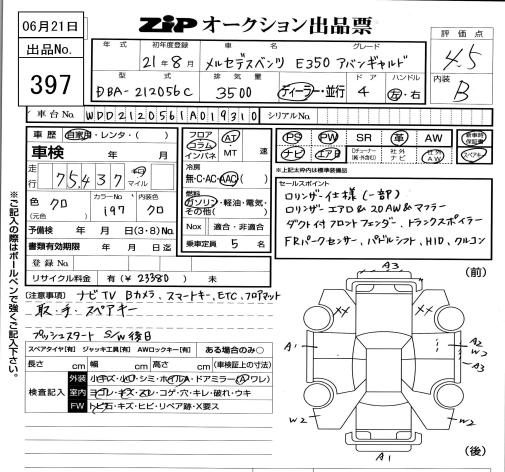 06月21日
ZIP オークション出品票
出品No.
397
年式 初年度登録 車名 グレード
21年8月 メルセデスベンツ E350 アバンギャルド
型式 排気量 ドア ハンドル
DBA-212056C 3500 ディーラー・並行 4 左・右
評価点
4.5
内装
B
車台No. WDD2120561A019310 シリアルNo.
車歴 自家用・レンタ・( )
車検 年 月
走行 75,437 km マイル
色 クロ (元色) カラーNo. 197 内装色 クロ
予備検 年 月 (3・8)No.
書類有効期限 年 月 日
登録No.
リサイクル料金 有(¥23380) 未
フロア コラム インパネ AT・MT 速
冷房 無・C・AC・AAC
燃料 ガソリン・軽油・電気・その他( )
Nox 適合・非適合
乗車定員 5 名
PS PW SR 革 AW 新車時保証書
ナビ エアB Dチューナー(純・外含む) 社外ナビ 社外AW スペアキー
※上記太枠内は標準装備品
セールスポイント
ロリンザー仕様(一部)
ロリンザーエアロ&20AW&マフラー
ダクト付フロントフェンダー、トランクスポイラー
FRパークセンサー、パドルシフト、HID、クルコン
※ご記入の際はボールペンで強くご記入下さい。
(注意事項) ナビTV Bカメラ、スマートキー、ETC、フロアマット
取・手・スペアキー
プッシュスタート S/W後日
スペアタイヤ[有] ジャッキ工具[有] AWロックキー[有] ある場合のみ○
長さ cm 幅 cm 高さ cm (車検証上の寸法)
検査記入
外装 小キズ・小凹・シミ・ホイルA・ドアミラー(A ワレ)
室内 ヨゴレ・キズ・スレ・コゲ・穴・キレ・破れ・ウキ
FW トビ石・キズ・ヒビ・リペア跡・X要ス
(前)
A3
XX XX
A1 A2
W2
A3
W2 W2
A1
(後)